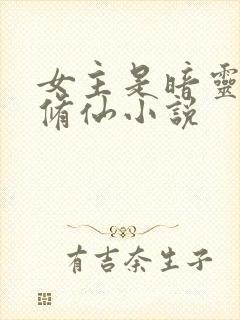 女主是暗靈
脩仙小説
有吉奈生子